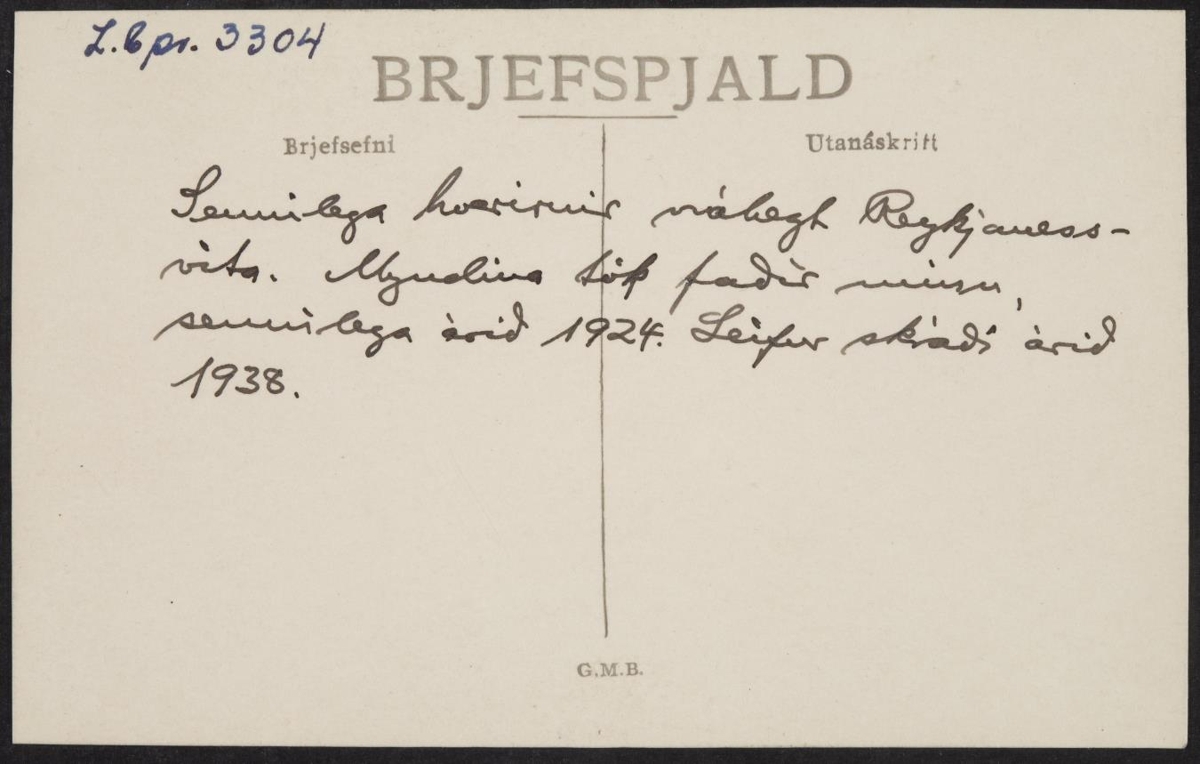 L.bpr. 3304
BRJEFSPJALD
Brjefsefni
Utanáskrift
Sennilega hverirnir nálægt Reykjaness-
vita. Myndina tók faðir minn,
sennilega árið 1924. Leifur skráði árið
1938.
G.M.B.